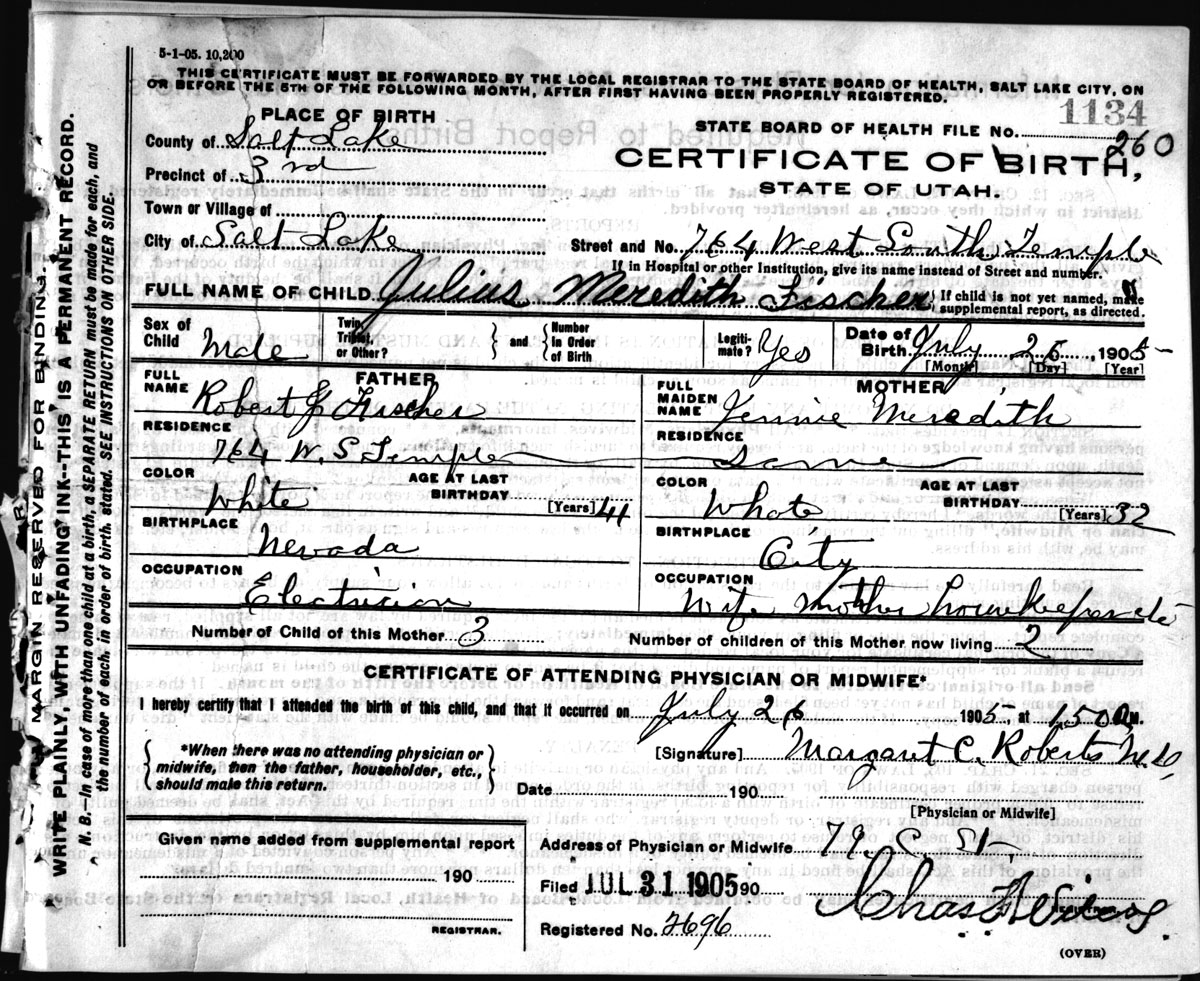 5-1-05. 10,200
THIS CERTIFICATE MUST BE FORWARDED BY THE LOCAL REGISTRAR TO THE STATE BOARD OF HEALTH, SALT LAKE CITY, ON
OR BEFORE THE 5TH OF THE FOLLOWING MONTH, AFTER FIRST HAVING BEEN PROPERLY REGISTERED.
1134
PLACE OF BIRTH
STATE BOARD OF HEALTH FILE NO. 260
County of Salt Lake
CERTIFICATE OF BIRTH,
Precinct of 3rd
STATE OF UTAH.
Town or Village of
City of Salt Lake Street and No. 764 West South Temple
If in Hospital or other Institution, give its name instead of Street and number.
FULL NAME OF CHILD Julius Meredith Fischer
If child is not yet named, make
supplemental report, as directed.
Sex of Child Male Twin, Triplet, or Other? and Number In Order of Birth Legiti-mate? Yes Date of Birth July 26, 1905
[Month] [Day] [Year]
FATHER
FULL NAME Robert J Fischer
RESIDENCE
764 W. S. Temple
COLOR White AGE AT LAST BIRTHDAY 41 [Years]
BIRTHPLACE
Nevada
OCCUPATION
Electrician
MOTHER
FULL MAIDEN NAME Jennie Meredith
RESIDENCE
Same
COLOR White AGE AT LAST BIRTHDAY 32 [Years]
BIRTHPLACE
City
OCCUPATION
Wife mother housekeeper etc
Number of Child of this Mother 3 Number of children of this Mother now living 2
CERTIFICATE OF ATTENDING PHYSICIAN OR MIDWIFE*
I hereby certify that I attended the birth of this child, and that it occurred on July 26 1905, at 1.50 a M.
*When there was no attending physician or
midwife, then the father, householder, etc.,
should make this return.
[Signature] Margaret C. Roberts M.D
Date 190
[Physician or Midwife]
Given name added from supplemental report
190
REGISTRAR.
Address of Physician or Midwife 79 C St
Filed JUL 31 1905 90
Chas F Wilcox
Registered No. 2696
(OVER)
MARGIN RESERVED FOR BINDING.
WRITE PLAINLY, WITH UNFADING INK--THIS IS A PERMANENT RECORD.
N. B. In case of more than one child at a birth, a SEPARATE RETURN must be made for each, and
the number of each, in order of birth, stated. SEE INSTRUCTIONS ON OTHER SIDE.